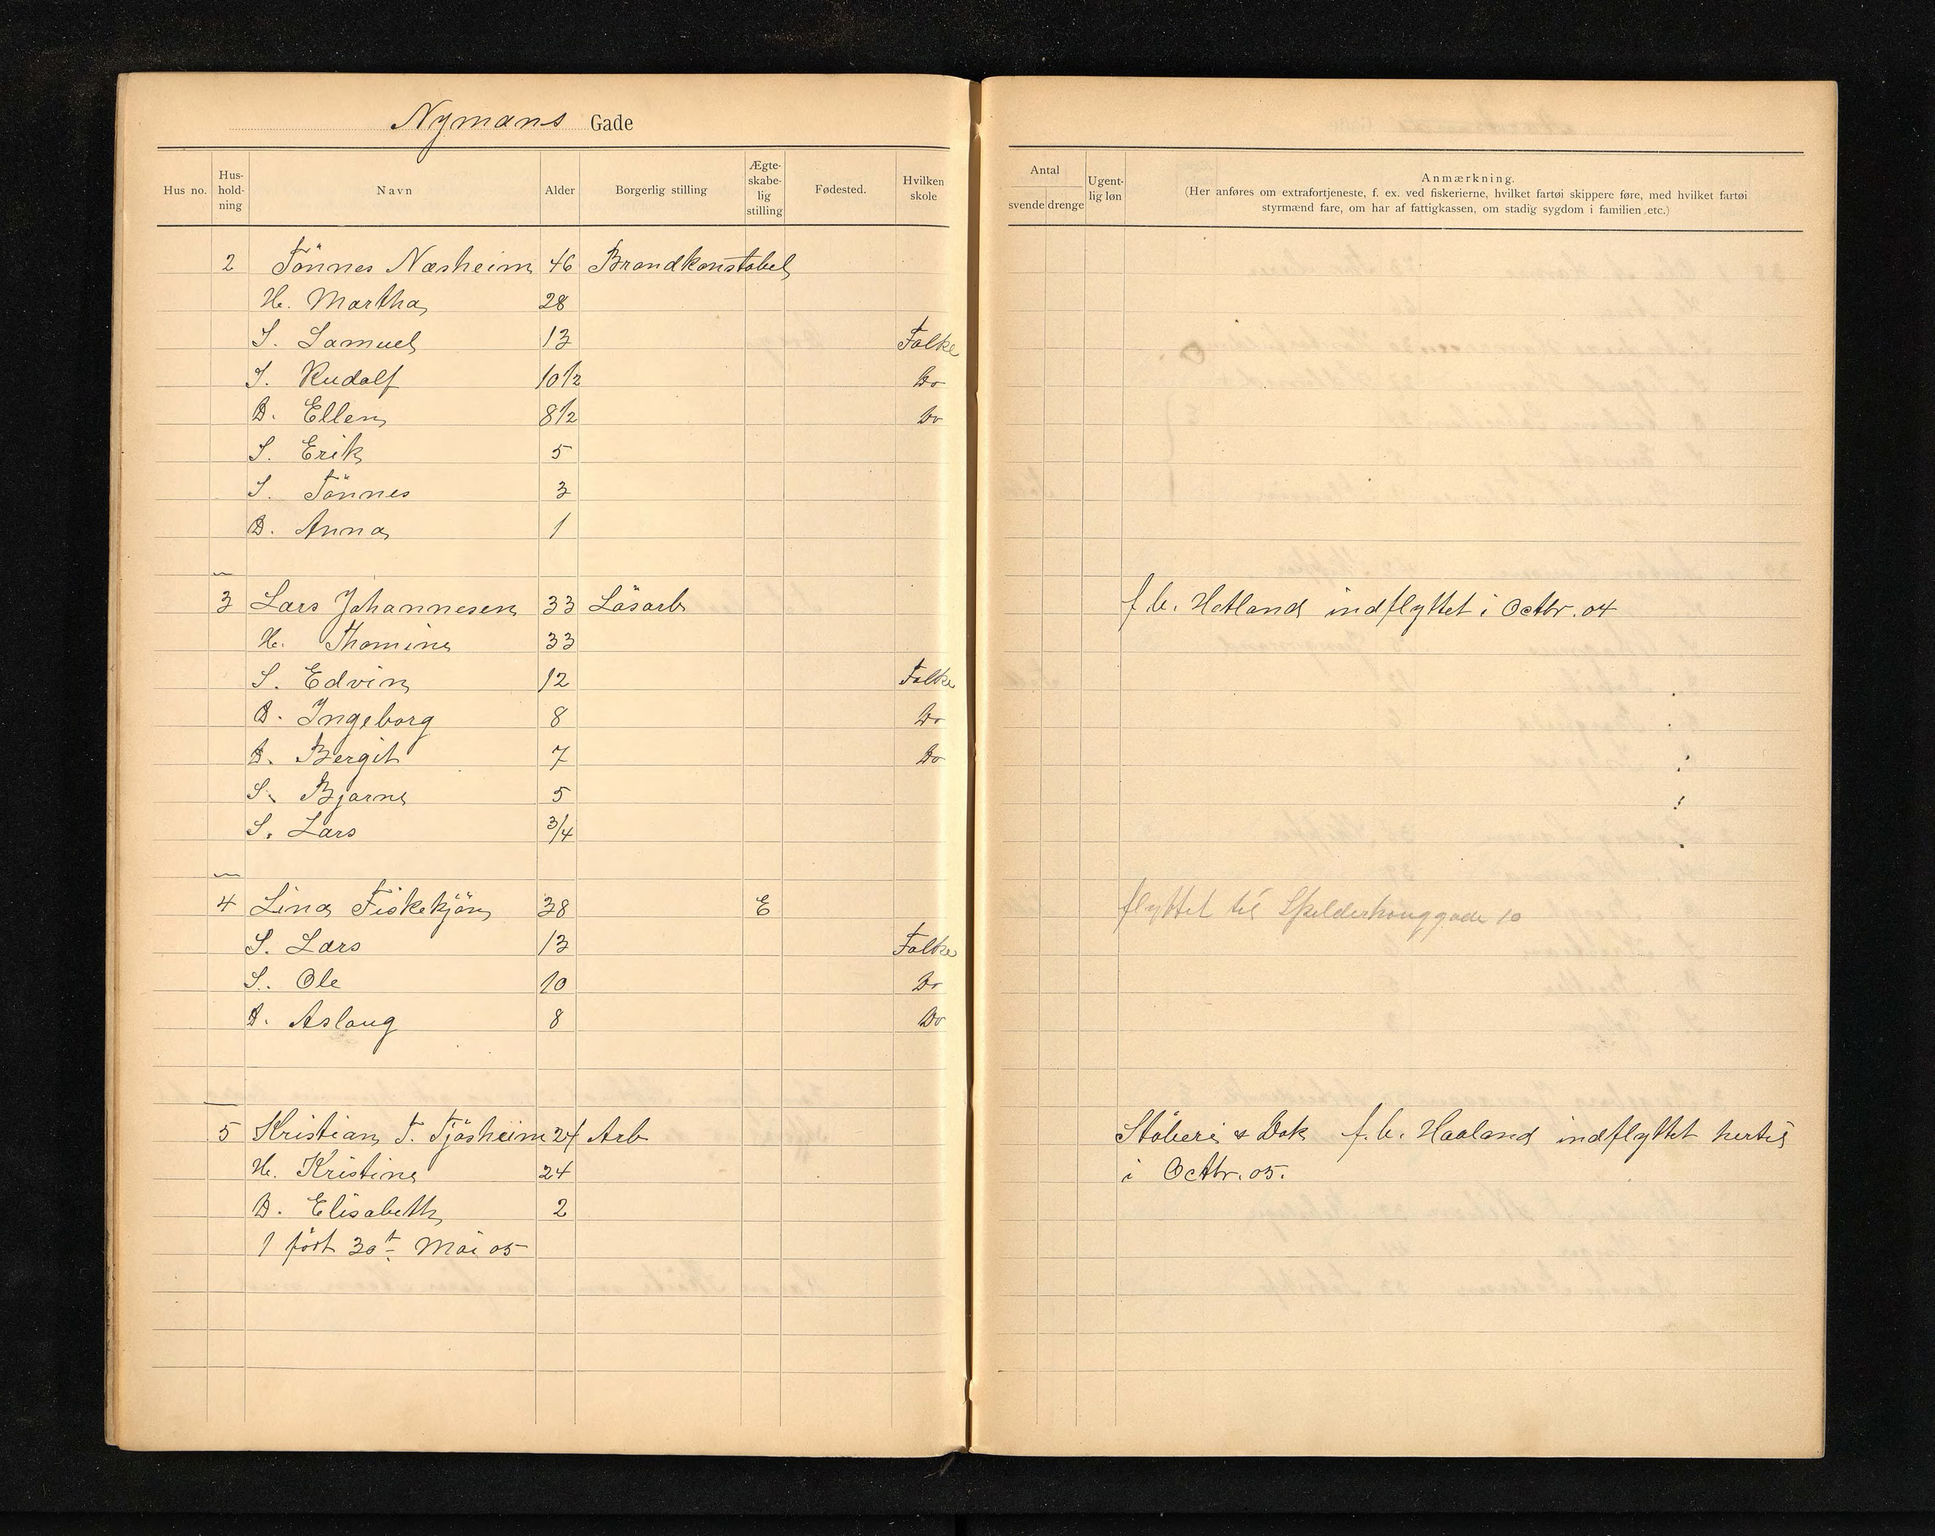 Nymans Gade
Hus no. Hus-hold-ning Navn Alder Borgerlig stilling Ægte-skabe-lig stilling Fødested. Hvilken skole
Antal svende drenge Ugent-lig løn Anmærkning.
(Her anføres om extrafortjeneste, f. ex. ved fiskerierne, hvilket fartøi skippere føre, med hvilket fartøi
styrmænd fare, om har af fattigkassen, om stadig sygdom i familien etc.)
2 Tönnes Næsheim 46 Brandkonstabel
H. Martha 28
S. Samuel 13 Folke
S. Rudolf 10 1/2 Do
D. Ellen 8 1/2 Do
S. Erik 5
S. Tönnes 3
D. Anna 1
3 Lars Johannesen 33 Lösarb f. b. Hetland indflyttet i Octbr. 04
H. Thomine 33
S. Edvin 12 Folke
D. Ingeborg 8 Do
D. Bergit 7 Do
S. Bjarne 5
S. Lars 3/4
4 Lina Fiskekjön 38 E flyttet til Spilderhauggade 10
S. Lars 13 Folke
S. Ole 10 Do
D. Aslaug 8 Do
5 Kristian T. Tjösheim 24 Arb Stöberi & Dok f. b. Haaland indflyttet hertil
H. Kristine 24 i Octbr. 05.
D. Elisabeth 2
1 född 30t Mai 05